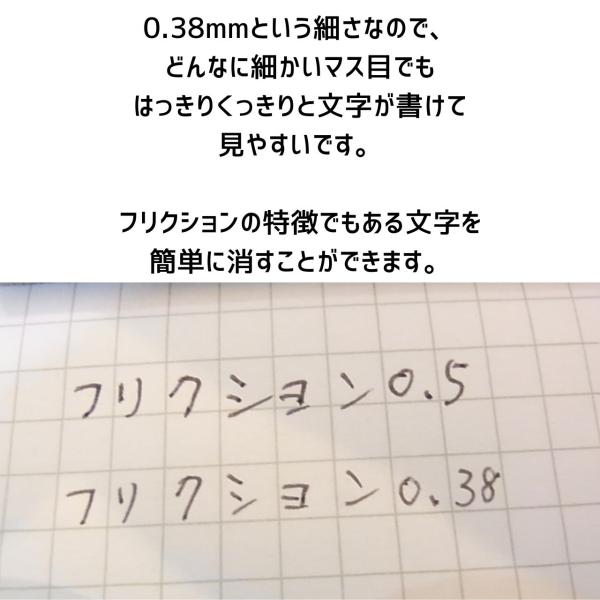 0.38mmという細さなので、
どんなに細かいマス目でも
はっきりくっきりと文字が書けて
見やすいです。
フリクションの特徴でもある文字を
簡単に消すことができます。
フリクション0.5
フリクション0.38